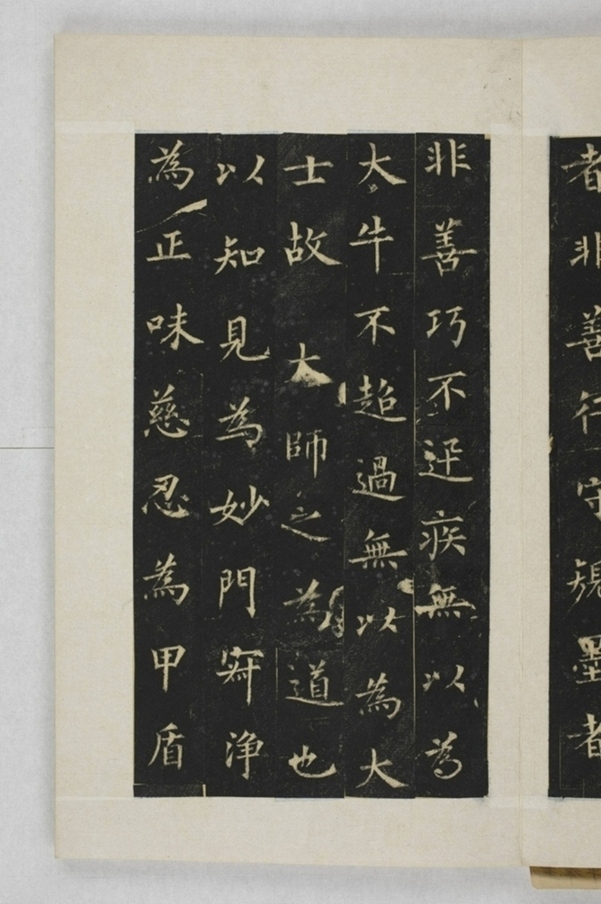 者非善行守規墨者
非善巧不迊疾無以為
大牛不超過無以為大
士故大師之為道也
以知見為妙門寂净
為正味慈忍為甲盾